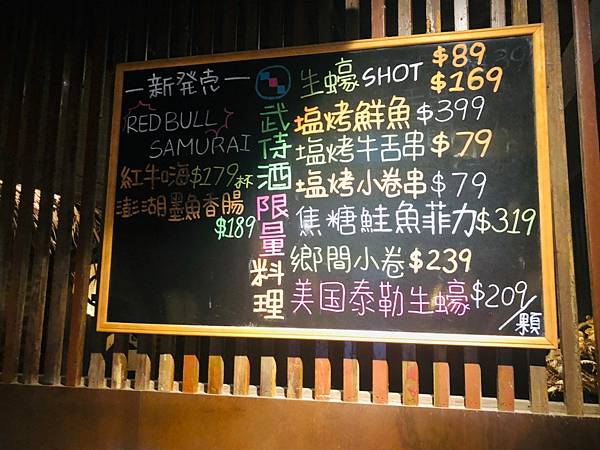 一新発売一
RED BULL
SAMURAI
紅牛嗨$179杯
澎湖墨魚香腸
$189
武侍酒限量料理
生蠔SHOT $89
$169
塩烤鮮魚$399
塩烤牛舌串$79
塩烤小卷串$79
焦糖鮭魚菲力$319
鄉間小卷$239
美国泰勒生蠔$209/顆